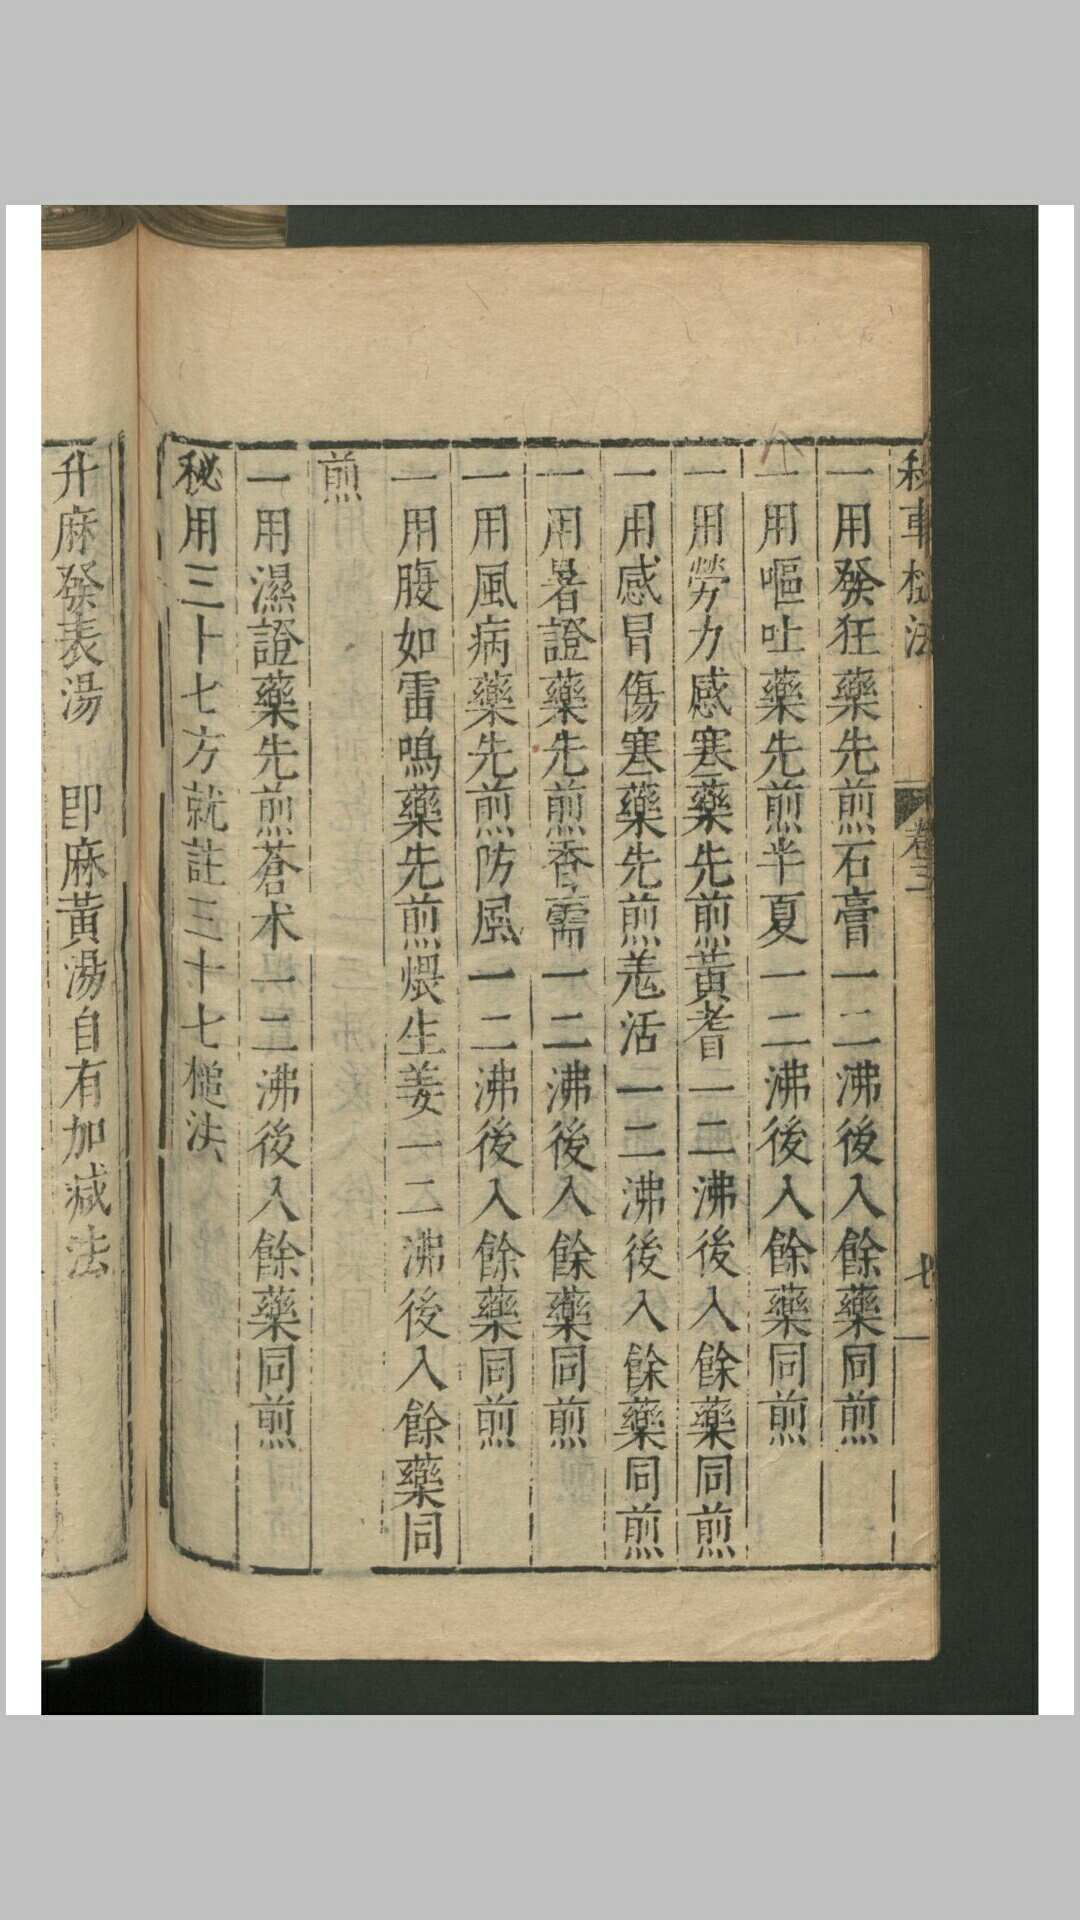 一用發狂藥先煎石膏一二沸後入餘藥同煎
一用嘔吐藥先煎半夏一二沸後入餘藥同煎
一用勞力感寒藥先煎黃耆一二沸後入餘藥同煎
一用感冒傷寒藥先煎羗活一二沸後入餘藥同煎
一用暑證藥先煎香薷一二沸後入餘藥同煎
一用風病藥先煎防風一二沸後入餘藥同煎
一用腹如雷鳴藥先煎煨生姜一二沸後入餘藥同
煎
一用濕證藥先煎蒼术一二沸後入餘藥同煎
秘用三十七方就註三十七槌法
升麻發表湯　卽麻黃湯自有加减法